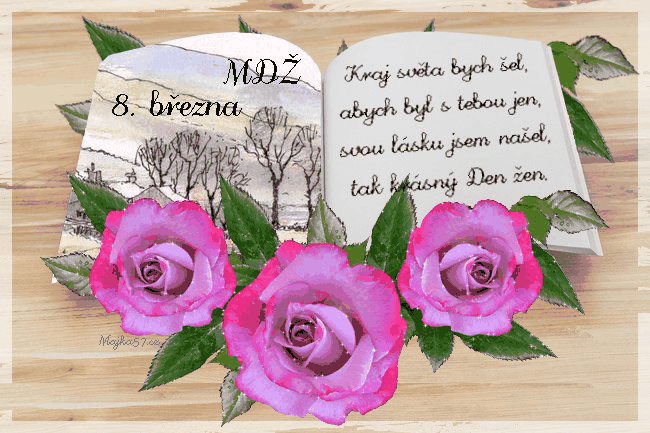 MDŽ
8. března
Kraj světa bych šel,
abych byl s tebou jen,
svou lásku jsem našel,
tak krásný Den žen.
Majka57.cz